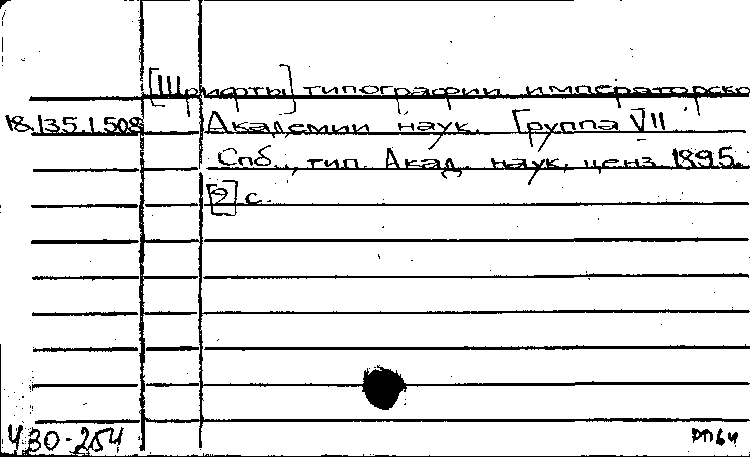 [Шрифты] типографии императорско
18.135.1.508 Академии наук. Группа VII.
Спб., тип. Акад. наук, ценз. 1895.
[2] с.
Ч30-254